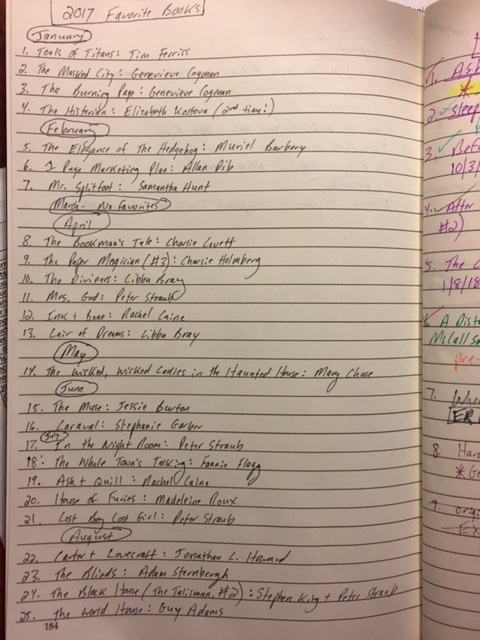 2017 Favorite Books
January
1. Tools of Titans: Tim Ferriss
2. The Masked City: Genevieve Cogman
3. The Burning Page: Genevieve Cogman
4. The Historian: Elizabeth Kostova (2nd time!)
February
5. The Elegance of The Hedgehog: Muriel Barbery
6. 1 Page Marketing Plan: Allan Dib
7. Mr. Splitfoot: Samantha Hunt
March - No Favorites
April
8. The Bookman's Tale: Charlie Lovett
9. The Paper Magician (#3): Charlie Holmberg
10. The Diviners: Libba Bray
11. Mrs. God: Peter Straub
12. Ink + Bone: Rachel Caine
13. Lair of Dreams: Libba Bray
May
14. The Wicked, Wicked Ladies in the Haunted House: Mary Chase
June
15. The Muse: Jessie Burton
16. Caraval: Stephanie Garber
July
17. In the Night Room: Peter Straub
18. The Whole Town's Talking: Fannie Flagg
19. Ash + Quill: Rachel Caine
20. House of Furies: Madeleine Roux
21. Lost Boy Lost Girl: Peter Straub
August
22. Carter + Lovecraft: Jonathan L. Howard
23. The Blinds: Adam Sternbergh
24. The Black House (The Talisman, #2): Stephen King + Peter Straub
25. The World House: Guy Adams
184
1.
2.
3.
10/3/
4. After
#2)
5. The
1/8/18
A Dist
McCall
pre-
7.
8.
9.